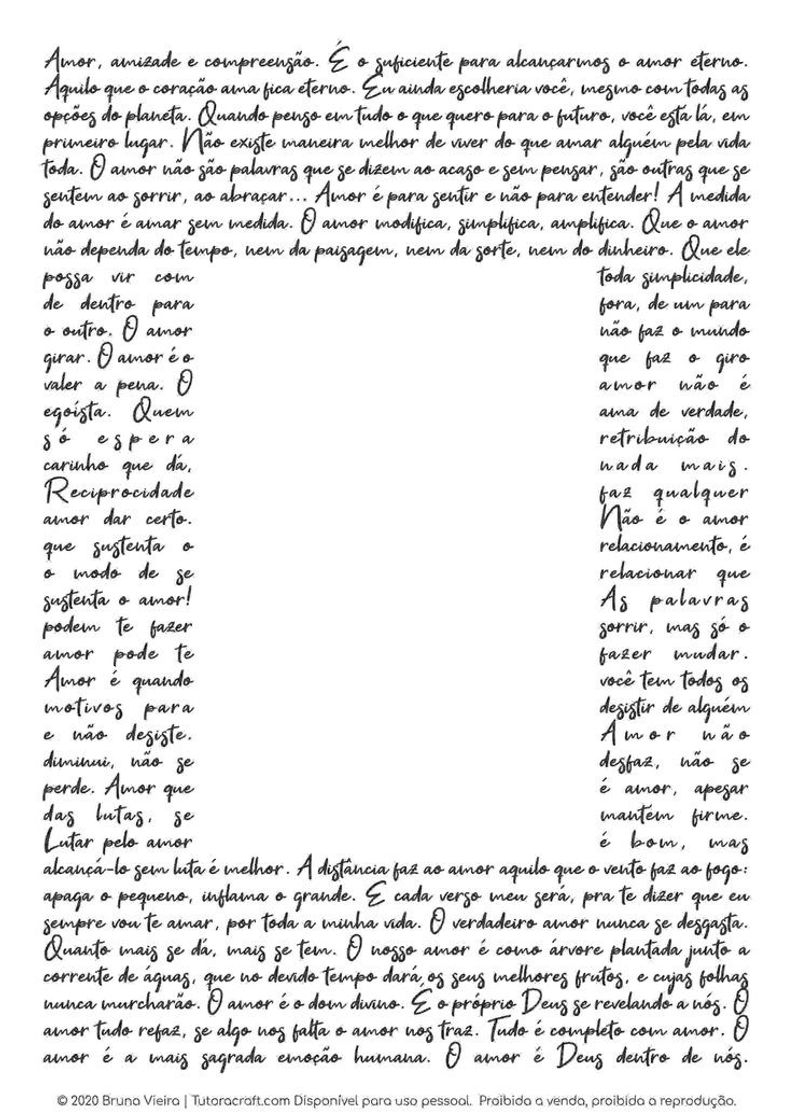 Amor, amizade e compreensão. É o suficiente para alcançarmos o amor eterno.
Aquilo que o coração ama fica eterno. Eu ainda escolheria você, mesmo com todas as
opções do planeta. Quando penso em tudo o que quero para o futuro, você está lá, em
primeiro lugar. Não existe maneira melhor de viver do que amar alguém pela vida
toda. O amor não são palavras que se dizem ao acaso e sem pensar, são outras que se
sentem ao sorrir, ao abraçar... Amor é para sentir e não para entender! A medida
do amor é amar sem medida. O amor modifica, simplifica, amplifica. Que o amor
não dependa do tempo, nem da paisagem, nem da sorte, nem do dinheiro. Que ele
possa vir com toda simplicidade,
de dentro para fora, de um para
o outro. O amor não faz o mundo
girar. O amor é o que faz o giro
valer a pena. O amor não é
egoísta. Quem ama de verdade,
só espera retribuição do
carinho que dá, nada mais.
Reciprocidade faz qualquer
amor dar certo. Não é o amor
que sustenta o relacionamento, é
o modo de se relacionar que
sustenta o amor! As palavras
podem te fazer sorrir, mas só o
amor pode te fazer mudar.
Amor é quando você tem todos os
motivos para desistir de alguém
e não desiste. Amor não
diminui, não se desfaz, não se
perde. Amor que é amor, apesar
das lutas, se mantem firme.
Lutar pelo amor é bom, mas
alcançá-lo sem luta é melhor. A distância faz ao amor aquilo que o vento faz ao fogo:
apaga o pequeno, inflama o grande. E cada verso meu será, pra te dizer que eu
sempre vou te amar, por toda a minha vida. O verdadeiro amor nunca se desgasta.
Quanto mais se dá, mais se tem. O nosso amor é como árvore plantada junto a
corrente de águas, que no devido tempo dará os seus melhores frutos, e cujas folhas
nunca murcharão. O amor é o dom divino. É o próprio Deus se revelando a nós. O
amor tudo refaz, se algo nos falta o amor nos traz. Tudo é completo com amor. O
amor é a mais sagrada emoção humana. O amor é Deus dentro de nós.
© 2020 Bruna Vieira | Tutoracraft.com Disponível para uso pessoal. Proibida a venda, proibida a reprodução.